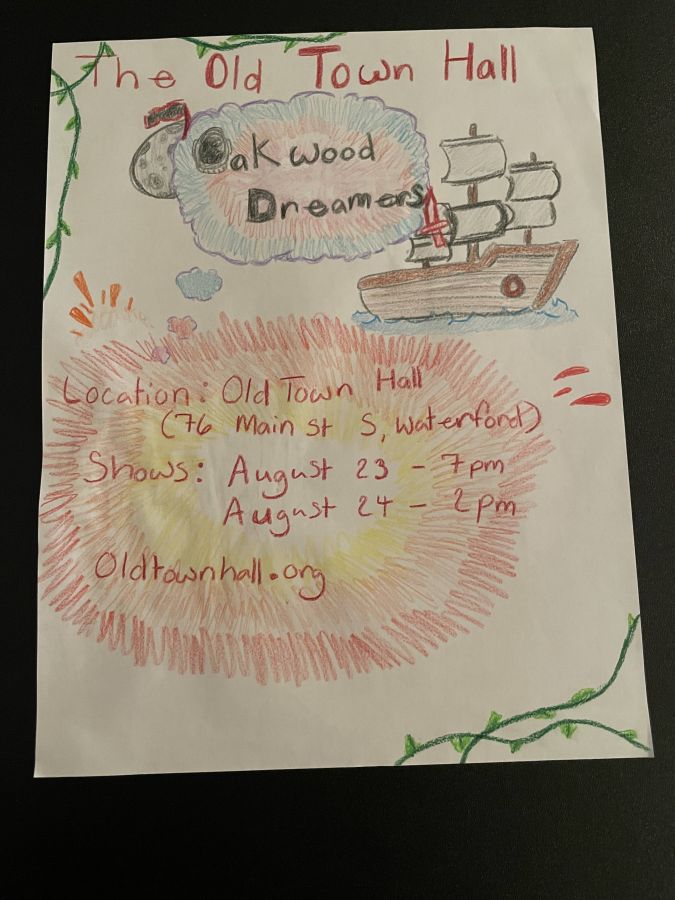 The Old Town Hall
Oakwood
Dreamers
Location: Old Town Hall
(76 Main st S, Waterford)
Shows: August 23 - 7pm
August 24 - 2pm
Oldtownhall.org